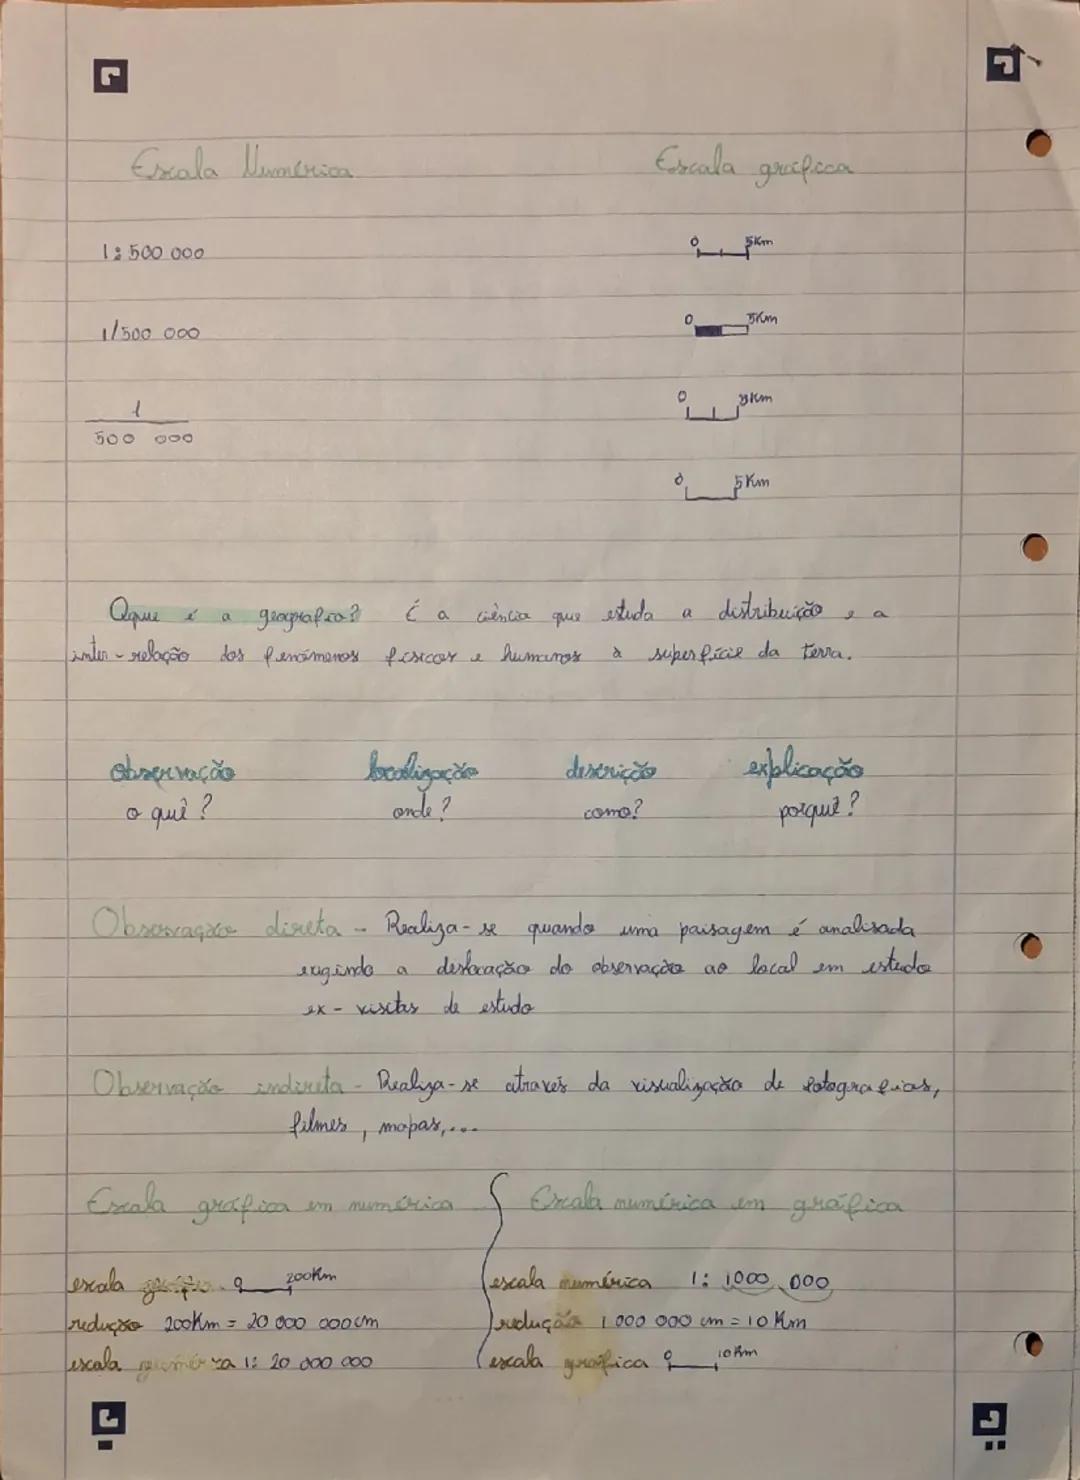 Escala Numérica Escala gráfica
1:500 000 0 5Km
1/500 000 0 5Km
1 0 3Km
500 000
0 5Km
Oque é a geografia? É a ciência que estuda a distribuição e a
inter-relação dos fenómenos físicos e humanos à superfície da terra.
observação localização descrição explicação
o quê? onde? como? porquê?
Observação direta - Realiza-se quando uma paisagem é analisada
exigindo a deslocação do observação ao local em estudo
ex - visitas de estudo
Observação indireta - Realiza-se através da visualização de fotografias,
filmes, mapas,...
Escala gráfica em numérica
escala gráfica 0 200Km
redução 200Km = 20 000 000cm
escala numérica 1: 20 000 000
Escala numérica em gráfica
escala numérica 1: 1000 000
redução 1 000 000 cm = 10 Km
escala gráfica 0 10Km